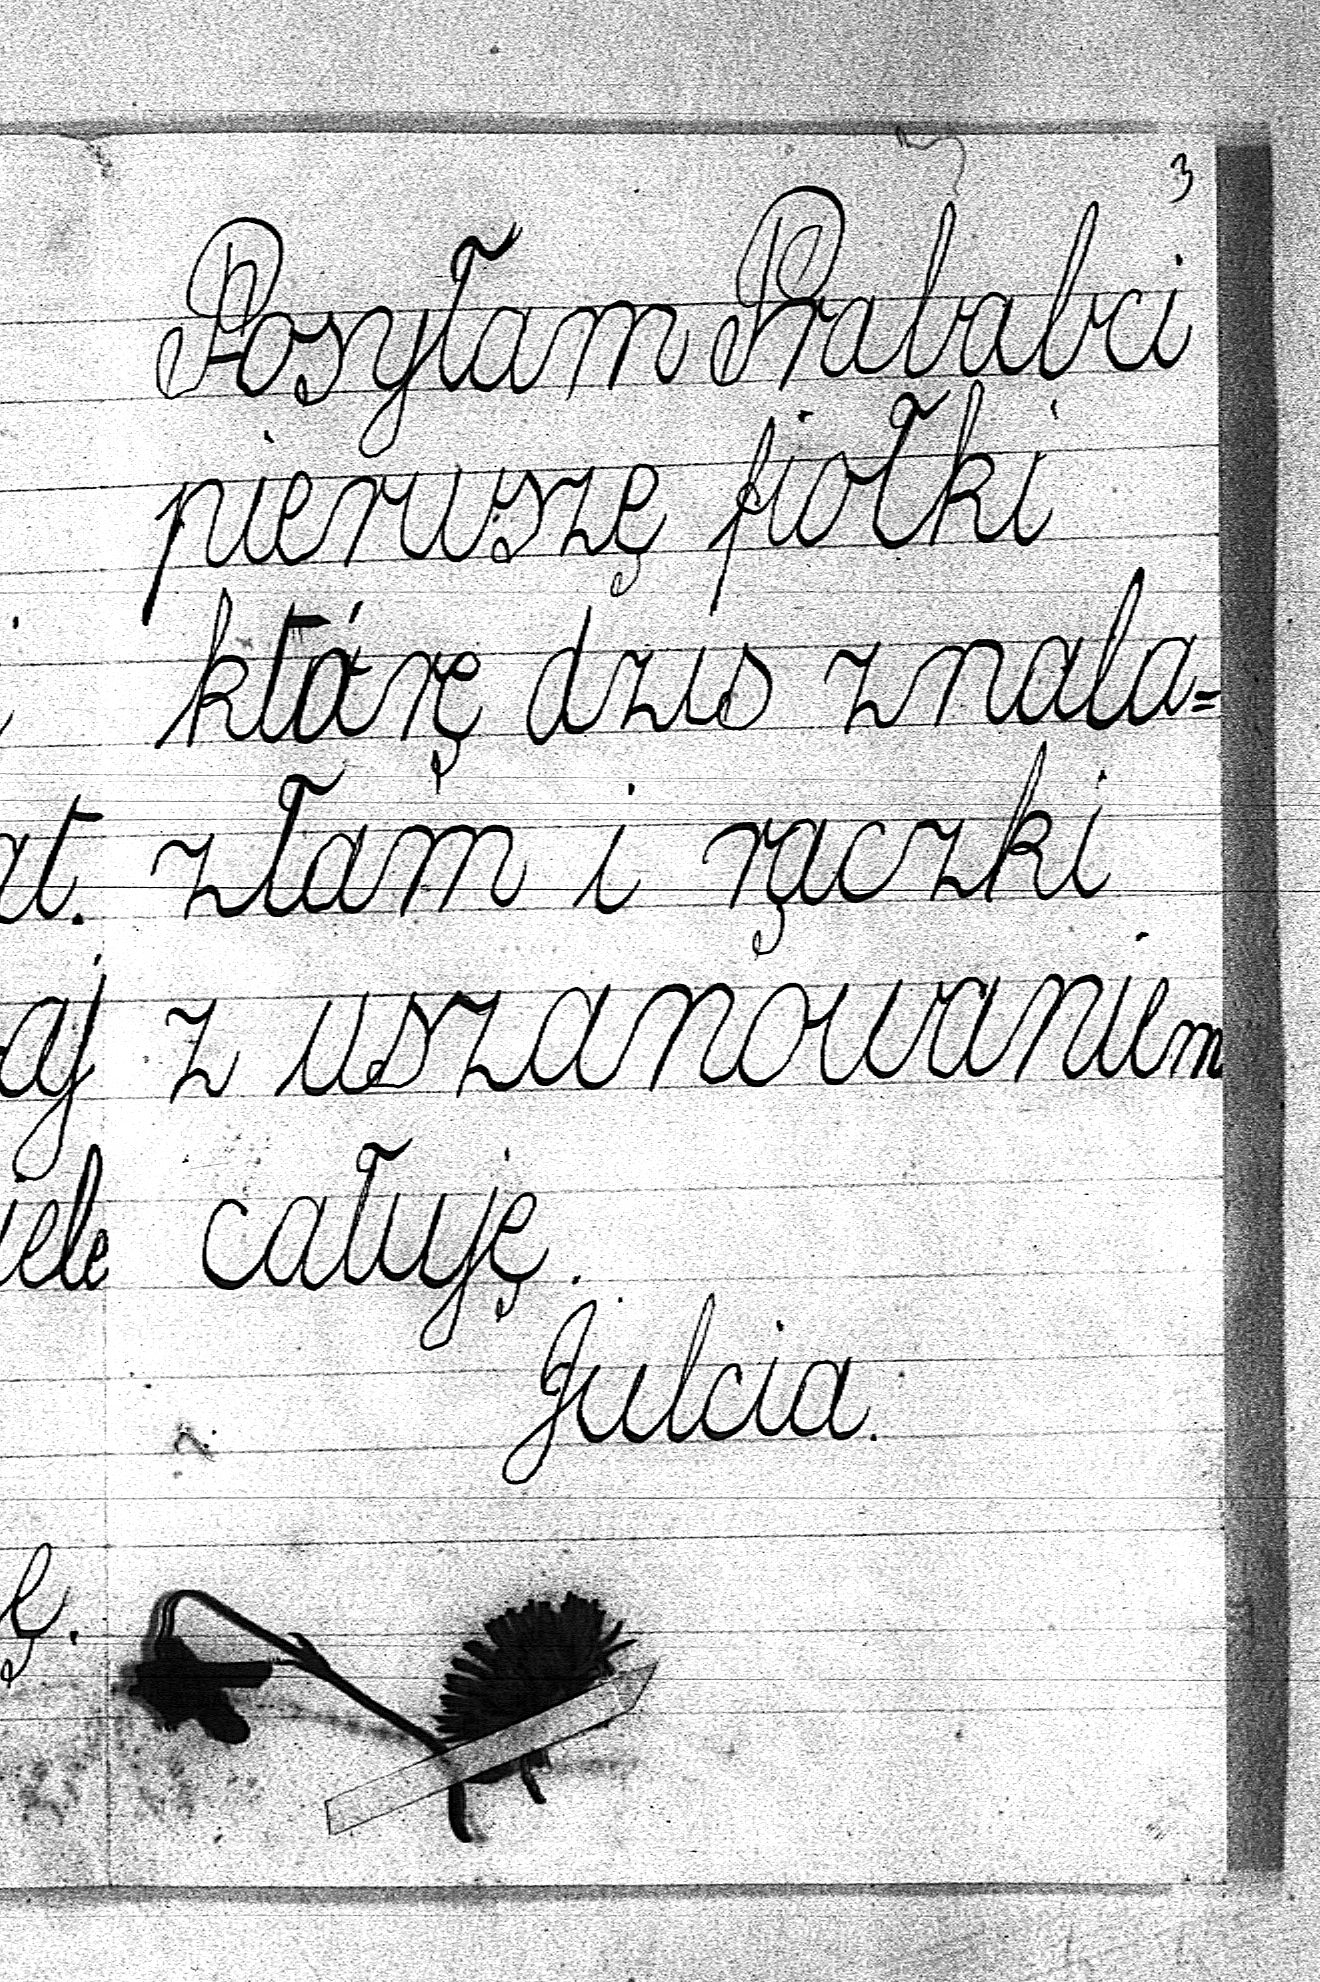 3
Posyłam Prababci
pierwszę fiołki
którę dzis znala=
złam i rączki
z uszanowaniem
całuję.
Julcia.
at.
aj
iele
ę.